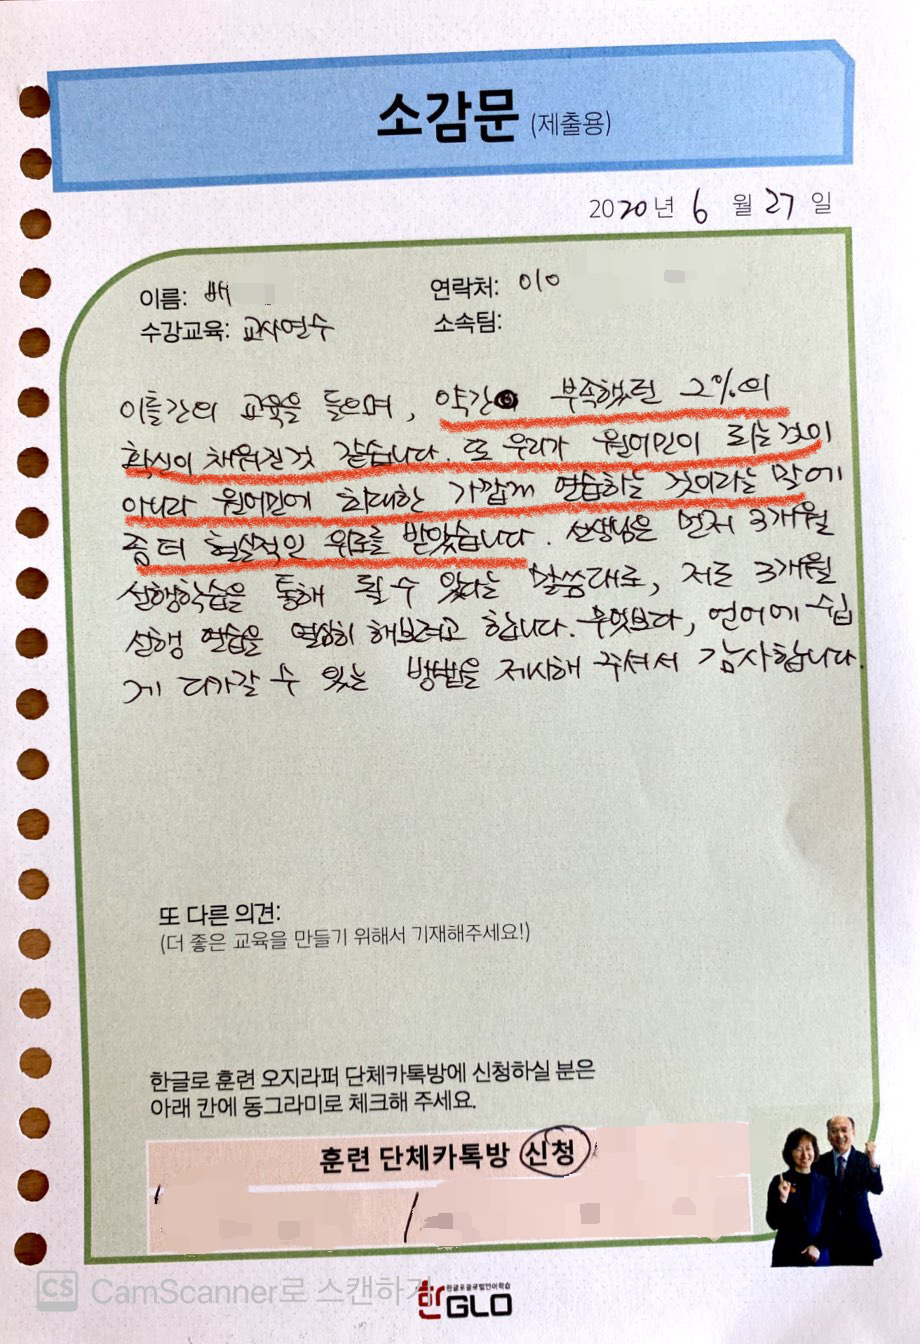 소감문 (제출용)
2020년 6월 27일
이름: 배
연락처: 010
수강교육: 교사연수
소속팀:
이틀간의 교육을 들으며, 약간 부족했던 2%의
확신이 채워진것 같습니다. 또 우리가 원어민이 되는것이
아니라 원어민에 최대한 가깝게 연습하는 것이라는 말에
좀 더 현실적인 위로를 받았습니다. 선생님은 먼저 3개월
실행학습을 통해 될 수 있다는 말씀대로, 저도 3개월
실행 연습을 열심히 해보려고 합니다. 무엇보다, 언어에 쉽
게 다가갈 수 있는 방법을 제시해 주셔서 감사합니다
또 다른 의견:
(더 좋은 교육을 만들기 위해서 기재해주세요!)
한글로 훈련 오지라퍼 단체카톡방에 신청하실 분은
아래 칸에 동그라미로 체크해 주세요.
훈련 단체카톡방 신청
CS CamScanner로 스캔하기
한글로영어발음언어학습
한GLO